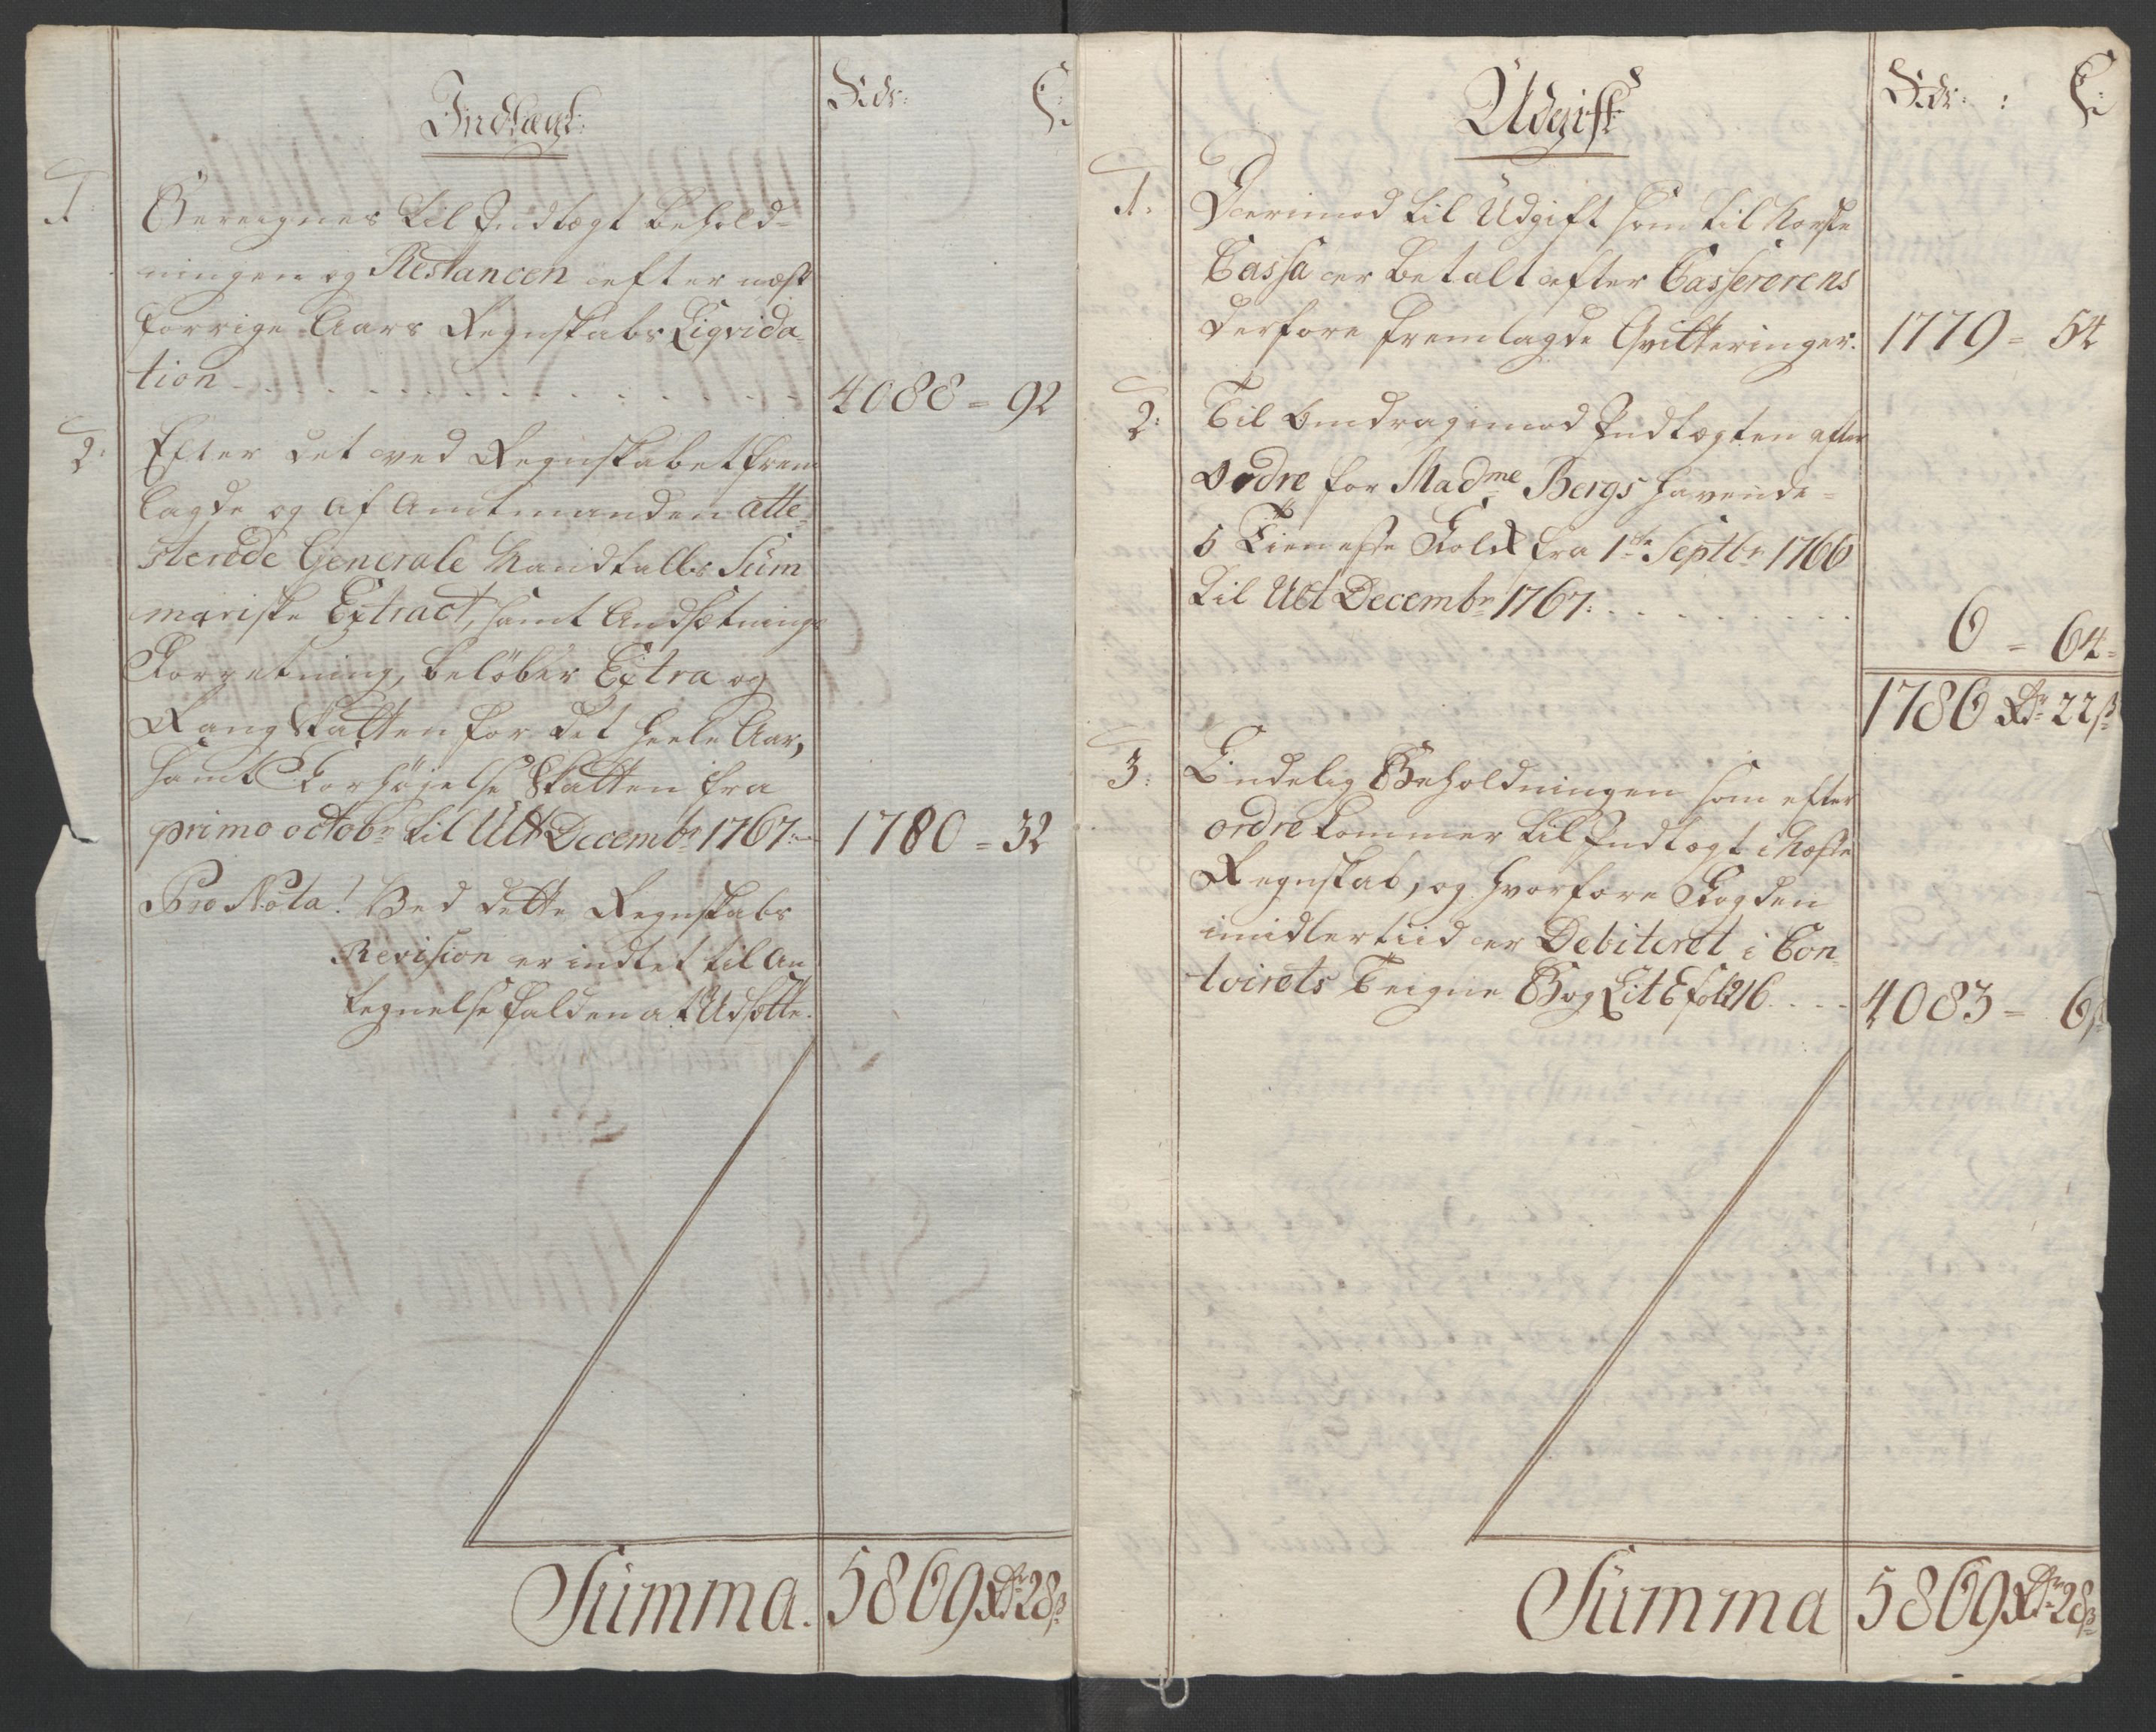 Indtægt: Rdr: ß:
1. Bereignes til Indtægt behold-
ningen og Restancen efter næst
forrige Aars Regnskabs Liqvida-
tion 4088 = 92
2: Efter det ved Regnskabet frem
lagde og af Amtmanden atte-
sterede Generale Mandtalls Sum
mariske Extract, samt Ansætnings
Forretning, beløber Extra og
Rang Skatten for det heele Aar,
samt Forhøjelse Skatten fra
primo octobr til Ult Decembr 1767. 1780 = 32
Pro Nota! Ved dette Regnskabs
Revision er indtet til An
tegnelse falden at Udsætte.
Summa. 5869 Rdr 28 ß
Udgift Rdr: ß:
1. Derimod til Udgift som til
Cassa er betalt efter Casserерens
derfore fremlagde Qvitteringer. 1779 = 54
2: Til Omdrag imod Indtægten efter
Ordre for Madme Bergs havende
5 Tieneste Folk fra 1ste Septbr 1766
til Ult Decembr 1767. 6 = 64
1786 Rdr 22 ß
3: Endelig Beholdningen som efter
ordre kommer til Indtægt i Næste
Regnskab, og hvorfore Fogden
imidlertiid er Debiteret i Con-
toirets Teigne Bog Lit E fol: 216 4083 = 6 ß
Summa 5869 Rdr 28 ß